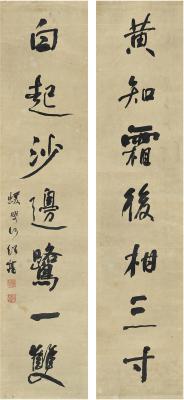 黄知霜後柑三寸
白起沙邊鷺一雙
蝯叟何紹基